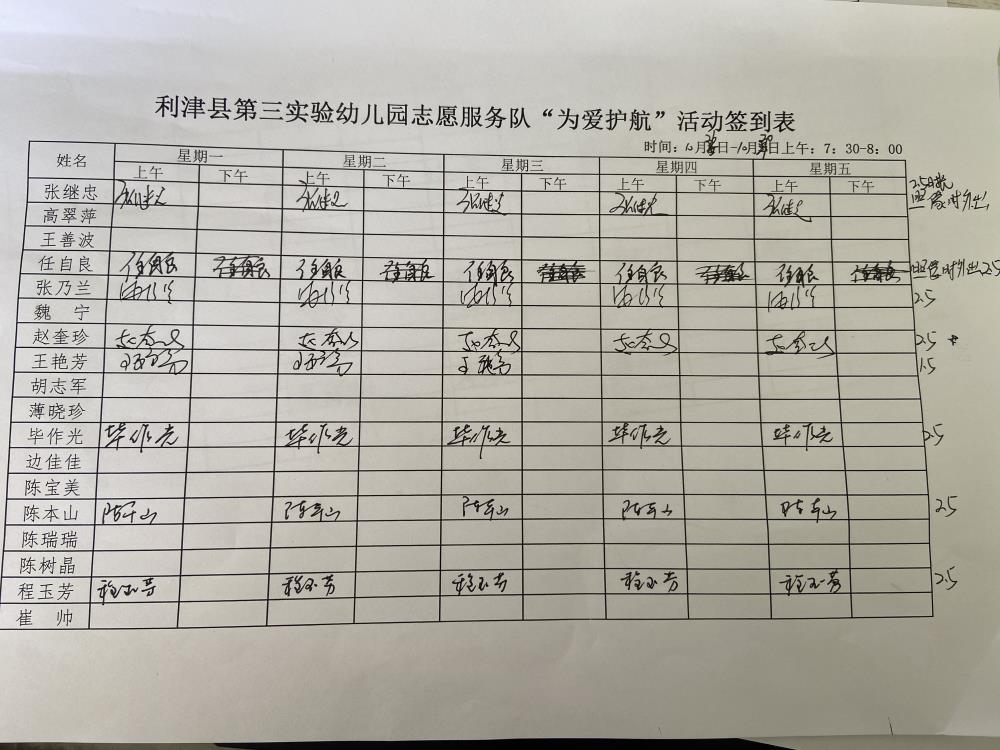 利津县第三实验幼儿园志愿服务队“为爱护航”活动签到表
时间：10月 日-10月 日上午：7：30-8：00
姓名 星期一 星期二 星期三 星期四 星期五
上午 下午 上午 下午 上午 下午 上午 下午 上午 下午
张继忠 张继忠 张继忠 张继忠 张继忠 张继忠 2.5
高翠萍
王善波
任自良 任自良 任自良 任自良 任自良 任自良 任自良 任自良 任自良 任自良 任自良 2.5
张乃兰 2.5
魏 宁
赵奎珍 赵奎珍 赵奎珍 赵奎珍 赵奎珍 赵奎珍 2.5
王艳芳 王艳芳 王艳芳 王艳芳 1.5
胡志军
薄晓珍
毕作光 毕作光 毕作光 毕作光 毕作光 毕作光 2.5
边佳佳
陈宝美
陈本山 陈本山 陈本山 陈本山 陈本山 陈本山 2.5
陈瑞瑞
陈树晶
程玉芳 程玉芳 程玉芳 程玉芳 程玉芳 程玉芳 2.5
崔 帅